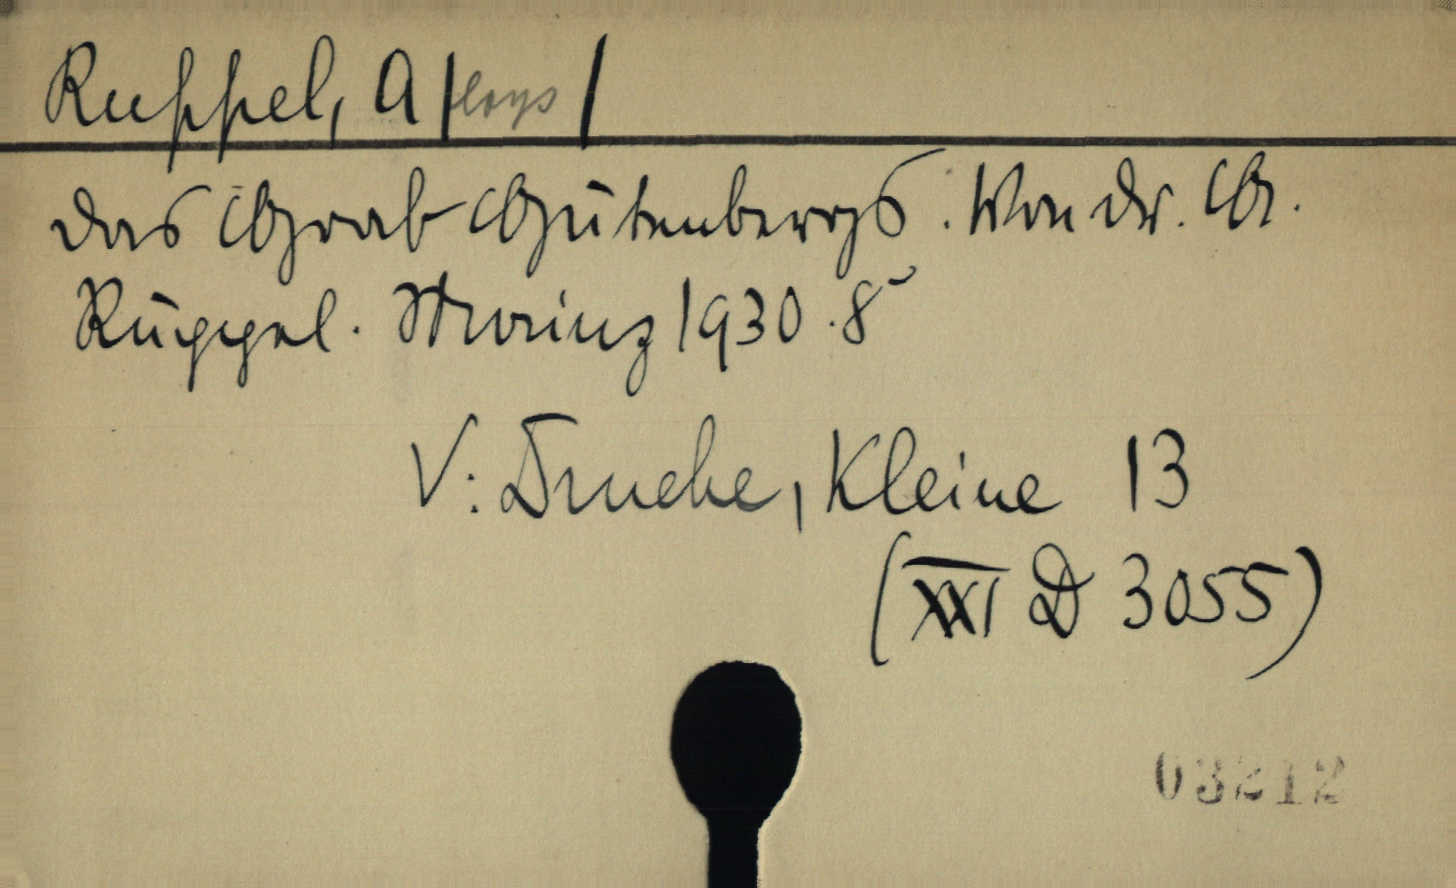 Ruppel, A[loys]
Das Grab Gutenbergs. Von Dr. A.
Ruppel. Mainz 1930. 8°
V: Drucke, Kleine 13
(XXI D 3055)
03212